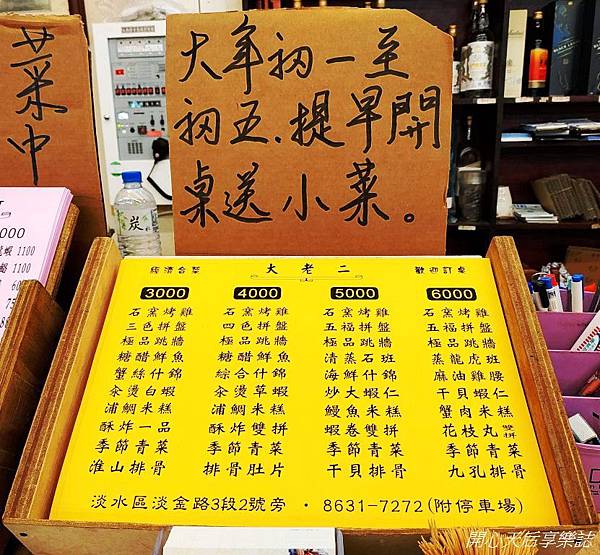 菜中
大年初一至
初五、提早開
桌送小菜。
炭
1100
1100
經濟合菜 大老二 歡迎訂桌
3000 4000 5000 6000
石窯烤雞 石窯烤雞 石窯烤雞 石窯烤雞
三色拼盤 四色拼盤 五福拼盤 五福拼盤
極品跳牆 極品跳牆 極品跳牆 極品跳牆
糖醋鮮魚 糖醋鮮魚 清蒸石班 蒸龍虎班
蟹絲什錦 綜合什錦 海鮮什錦 麻油雞腰
汆燙白蝦 汆燙草蝦 炒大蝦仁 干貝蝦仁
浦鯛米糕 浦鯛米糕 鰻魚米糕 蟹肉米糕
酥炸一品 酥炸雙拼 蝦卷雙拼 花枝丸雙拼
季節青菜 季節青菜 季節青菜 季節青菜
淮山排骨 排骨肚片 干貝排骨 九孔排骨
淡水區淡金路3段2號旁 · 8631-7272(附停車場)
開心天后享樂誌